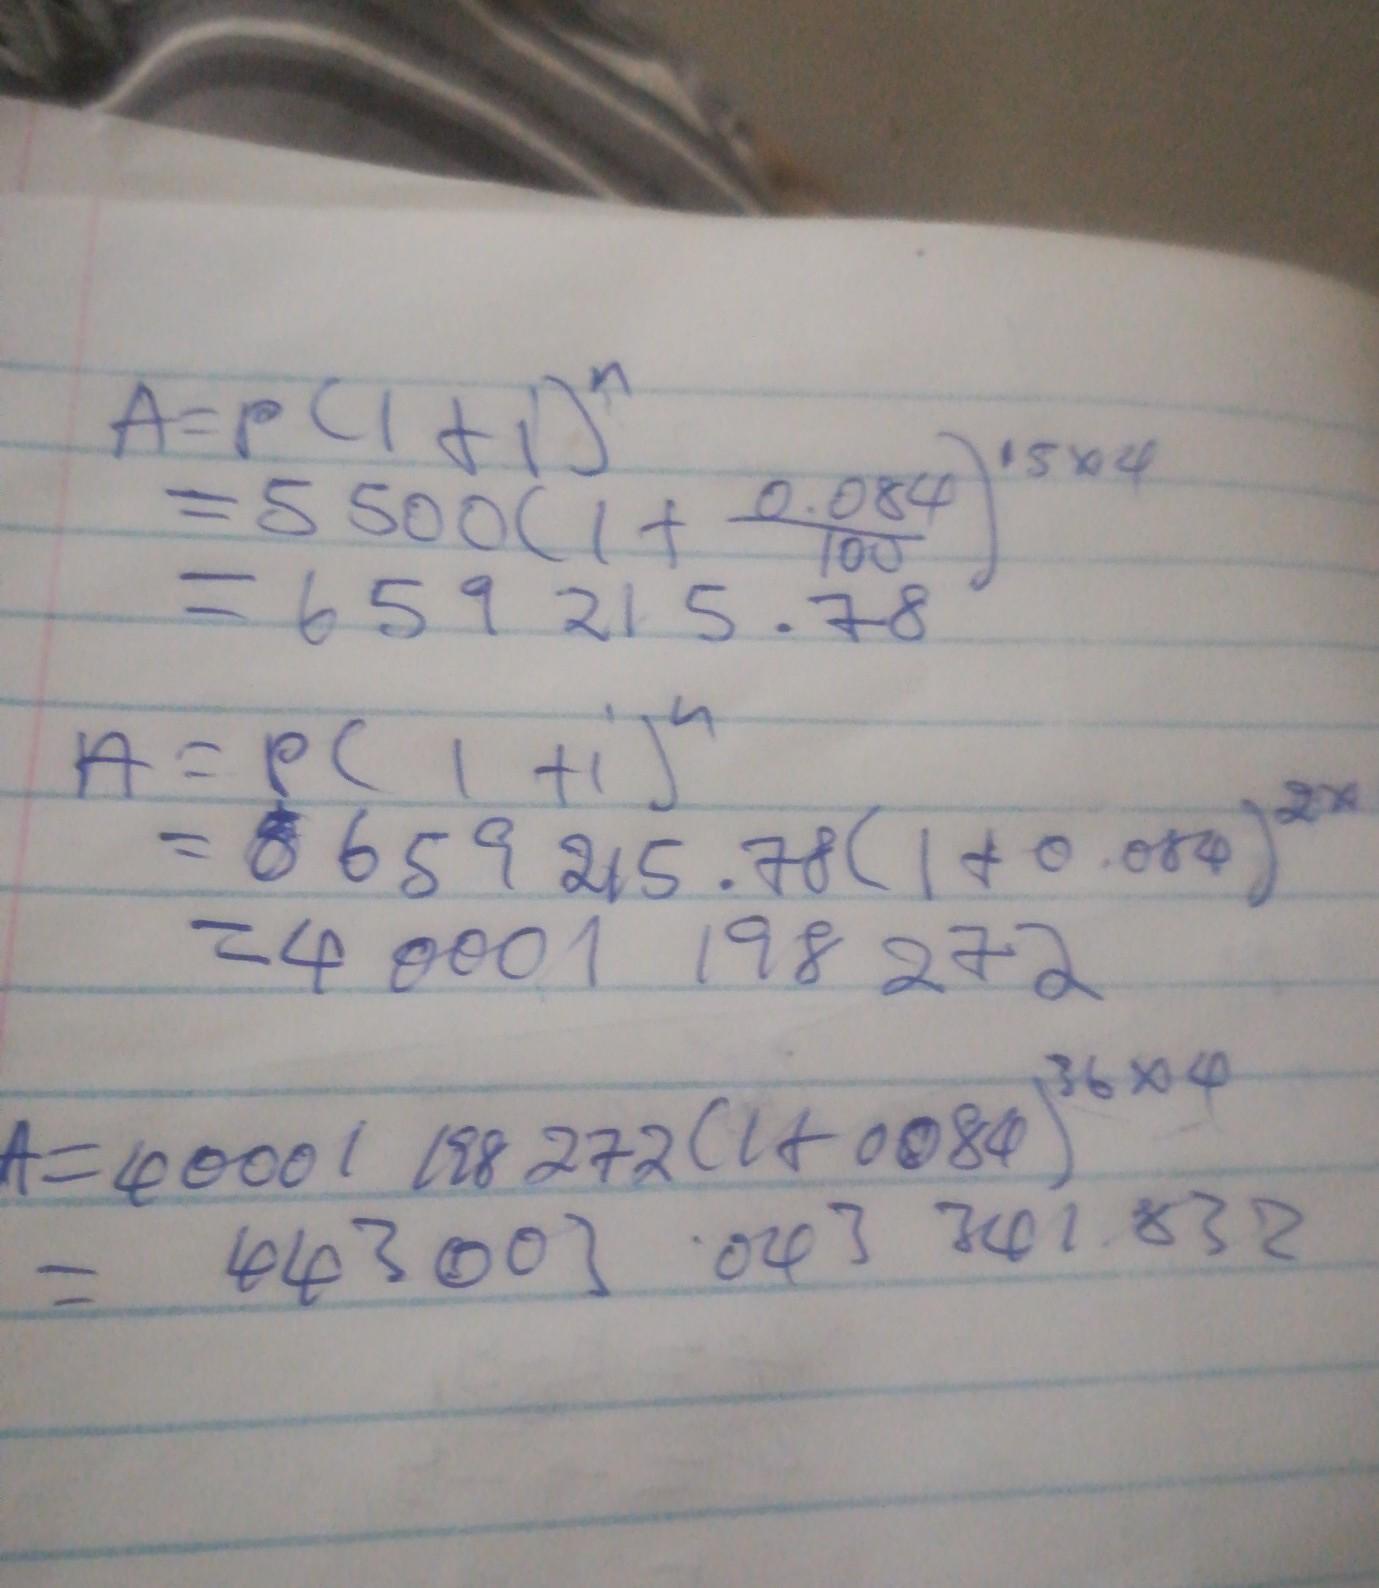 A=P(1+i)^n
=5 500(1+0.084/100)^15×4
=659 215.78
A=P(1+i)^n
=659 215.78(1+0.084)^2×
=4 0001 198 272
A=40001 198 272(1+0084)^36×4
= 443003 .043 341.832